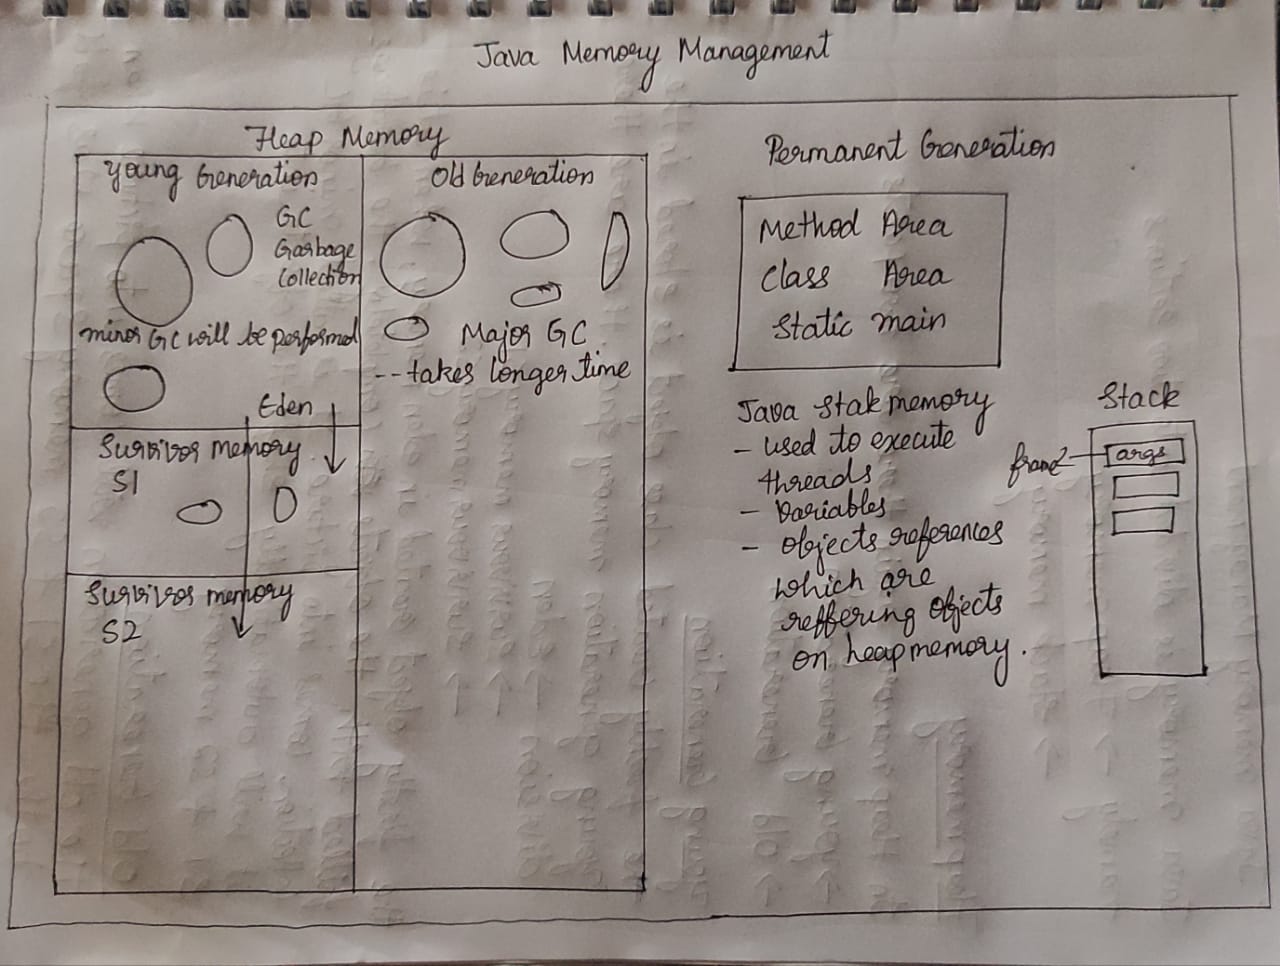 Java Memory Management
Heap Memory
Young Generation
GC
Garbage
Collection
minor GC will be performed
Eden
Survivor memory
S1
Survivor memory
S2
Old Generation
Major GC
-- takes longer time
Permanent Generation
Method Area
Class Area
Static main
Java stak memory
- used to execute
threads
- Variables
- Objects references
which are
reffering objects
on heap memory.
Stack
frame
args